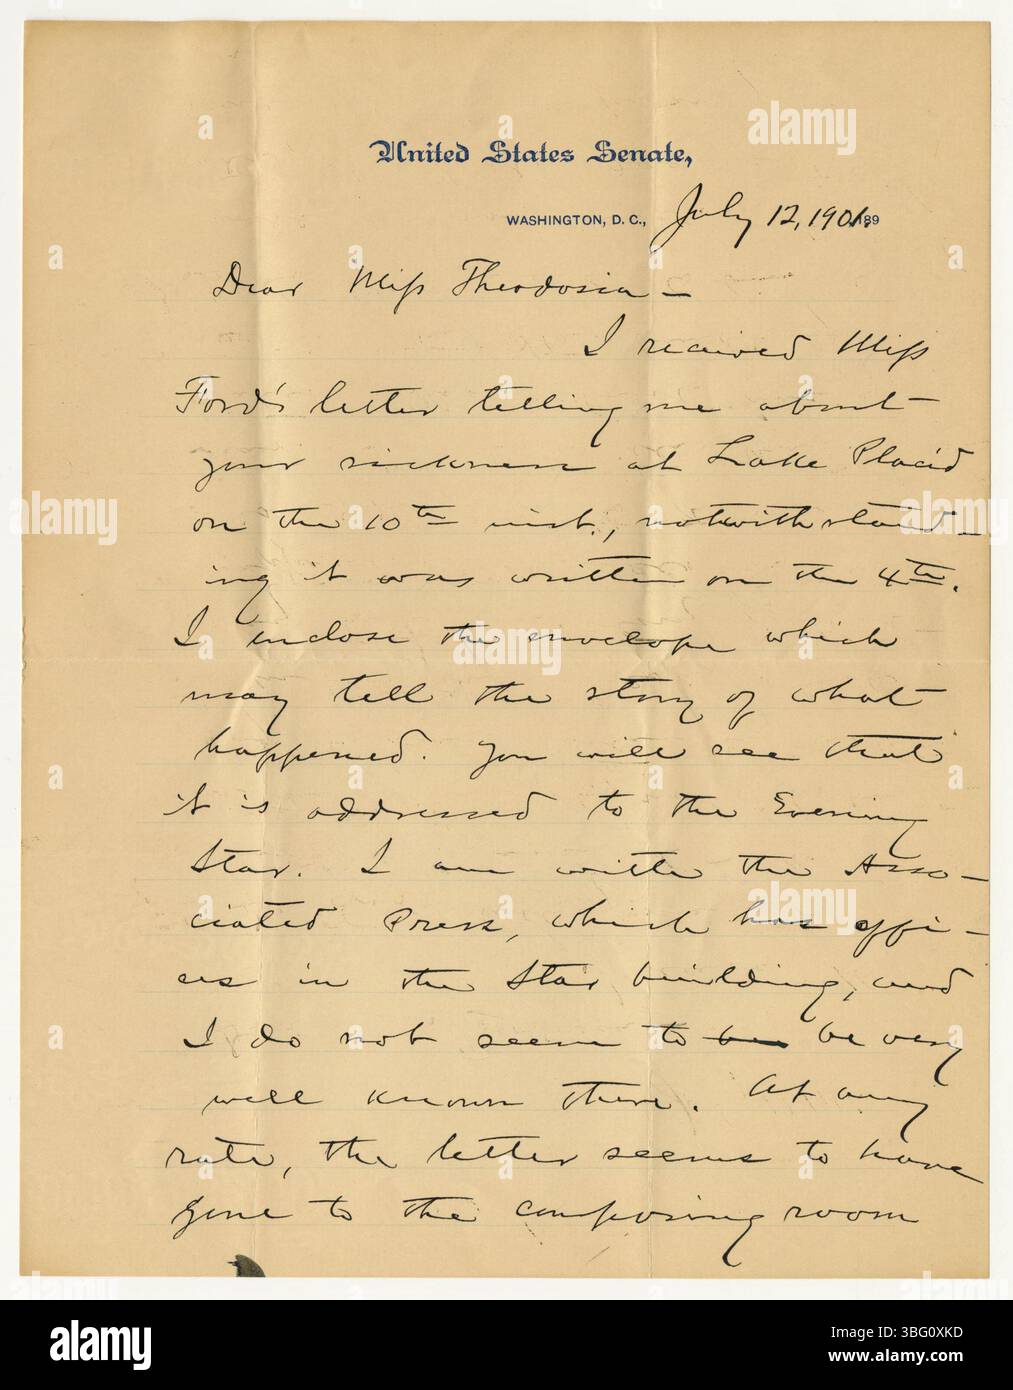 United States Senate,
WASHINGTON, D. C., July 12, 1901. 189
Dear Miss Theodosia —
I received Miss
Ford's letter telling me about
your sickness at Lake Placid
on the 10th inst., notwithstand-
ing it was written on the 4th.
I inclose the envelope which
may tell the story of what
happened. You will see that
it is addressed to the Evening
Star. I am with the Asso-
ciated Press, which has offi-
ces in the Star building, and
I do not seem to be be very
well known there. At any
rate, the letter seems to have
gone to the composing room
alamy
Image ID: 3BG0XKD
www.alamy.com